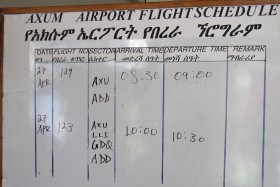 AXUM AIRPORT FLIGHT SCHEDULE
የአክሱም ኤርፖርት የበረራ ፕሮግራም
DATE FLIGHT NO SECTOR ARRIVAL TIME DEPARTURE TIME REMARK
ቀን የበረራ ቁጥር
27 129 AXU 08:30 09:00
APR ADD
27 123 AXU 10:00 10:30
APR LLI
GDQ
ADD